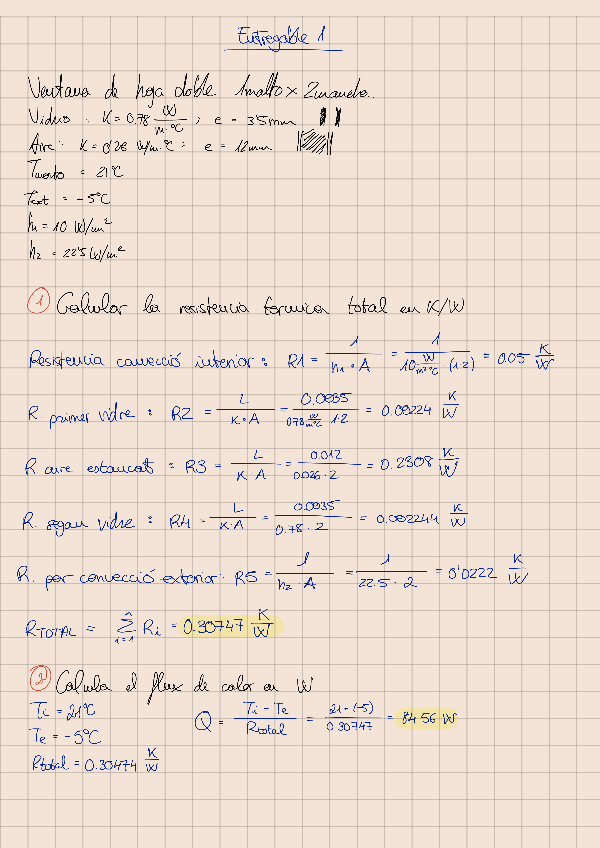 Entregable 1
Ventana de hoja doble. 1m alto x 2m ancho.
Vidrio : K = 0.78 W/m·°C ; e = 3'5mm
Aire : K = 0'026 W/m·°C ; e = 12mm
= 21°C
Text = -5°C
h1 = 10 W/m²
h2 = 22'5 W/m²
① Calcular la resistencia termica total en K/W
Resistencia convecció interior : R1 = 1/(h1·A) = 1/(10 W/m²°C (1·2)) = 0.05 K/W
R primer vidre : R2 = L/(K·A) = 0.0035/(0.78 W/m°C 1·2) = 0.00224 K/W
R aire estancat : R3 = L/(K A) = 0.012/(0.026·2) = 0.2308 K/W
R. segon vidre : R4 = L/(K·A) = 0.0035/(0.78·2) = 0.002244 K/W
R. per convecció exterior : R5 = 1/(h2·A) = 1/(22.5·2) = 0'0222 K/W
RTOTAL = Σ i=1 n Ri = 0.30747 K/W
② Calcula el flux de calor en W
Ti = 21°C Q = (Ti - Te)/Rtotal = (21-(-5))/0.30747 = 84.56 W
Te = -5°C
Rtotal = 0.30474 K/W